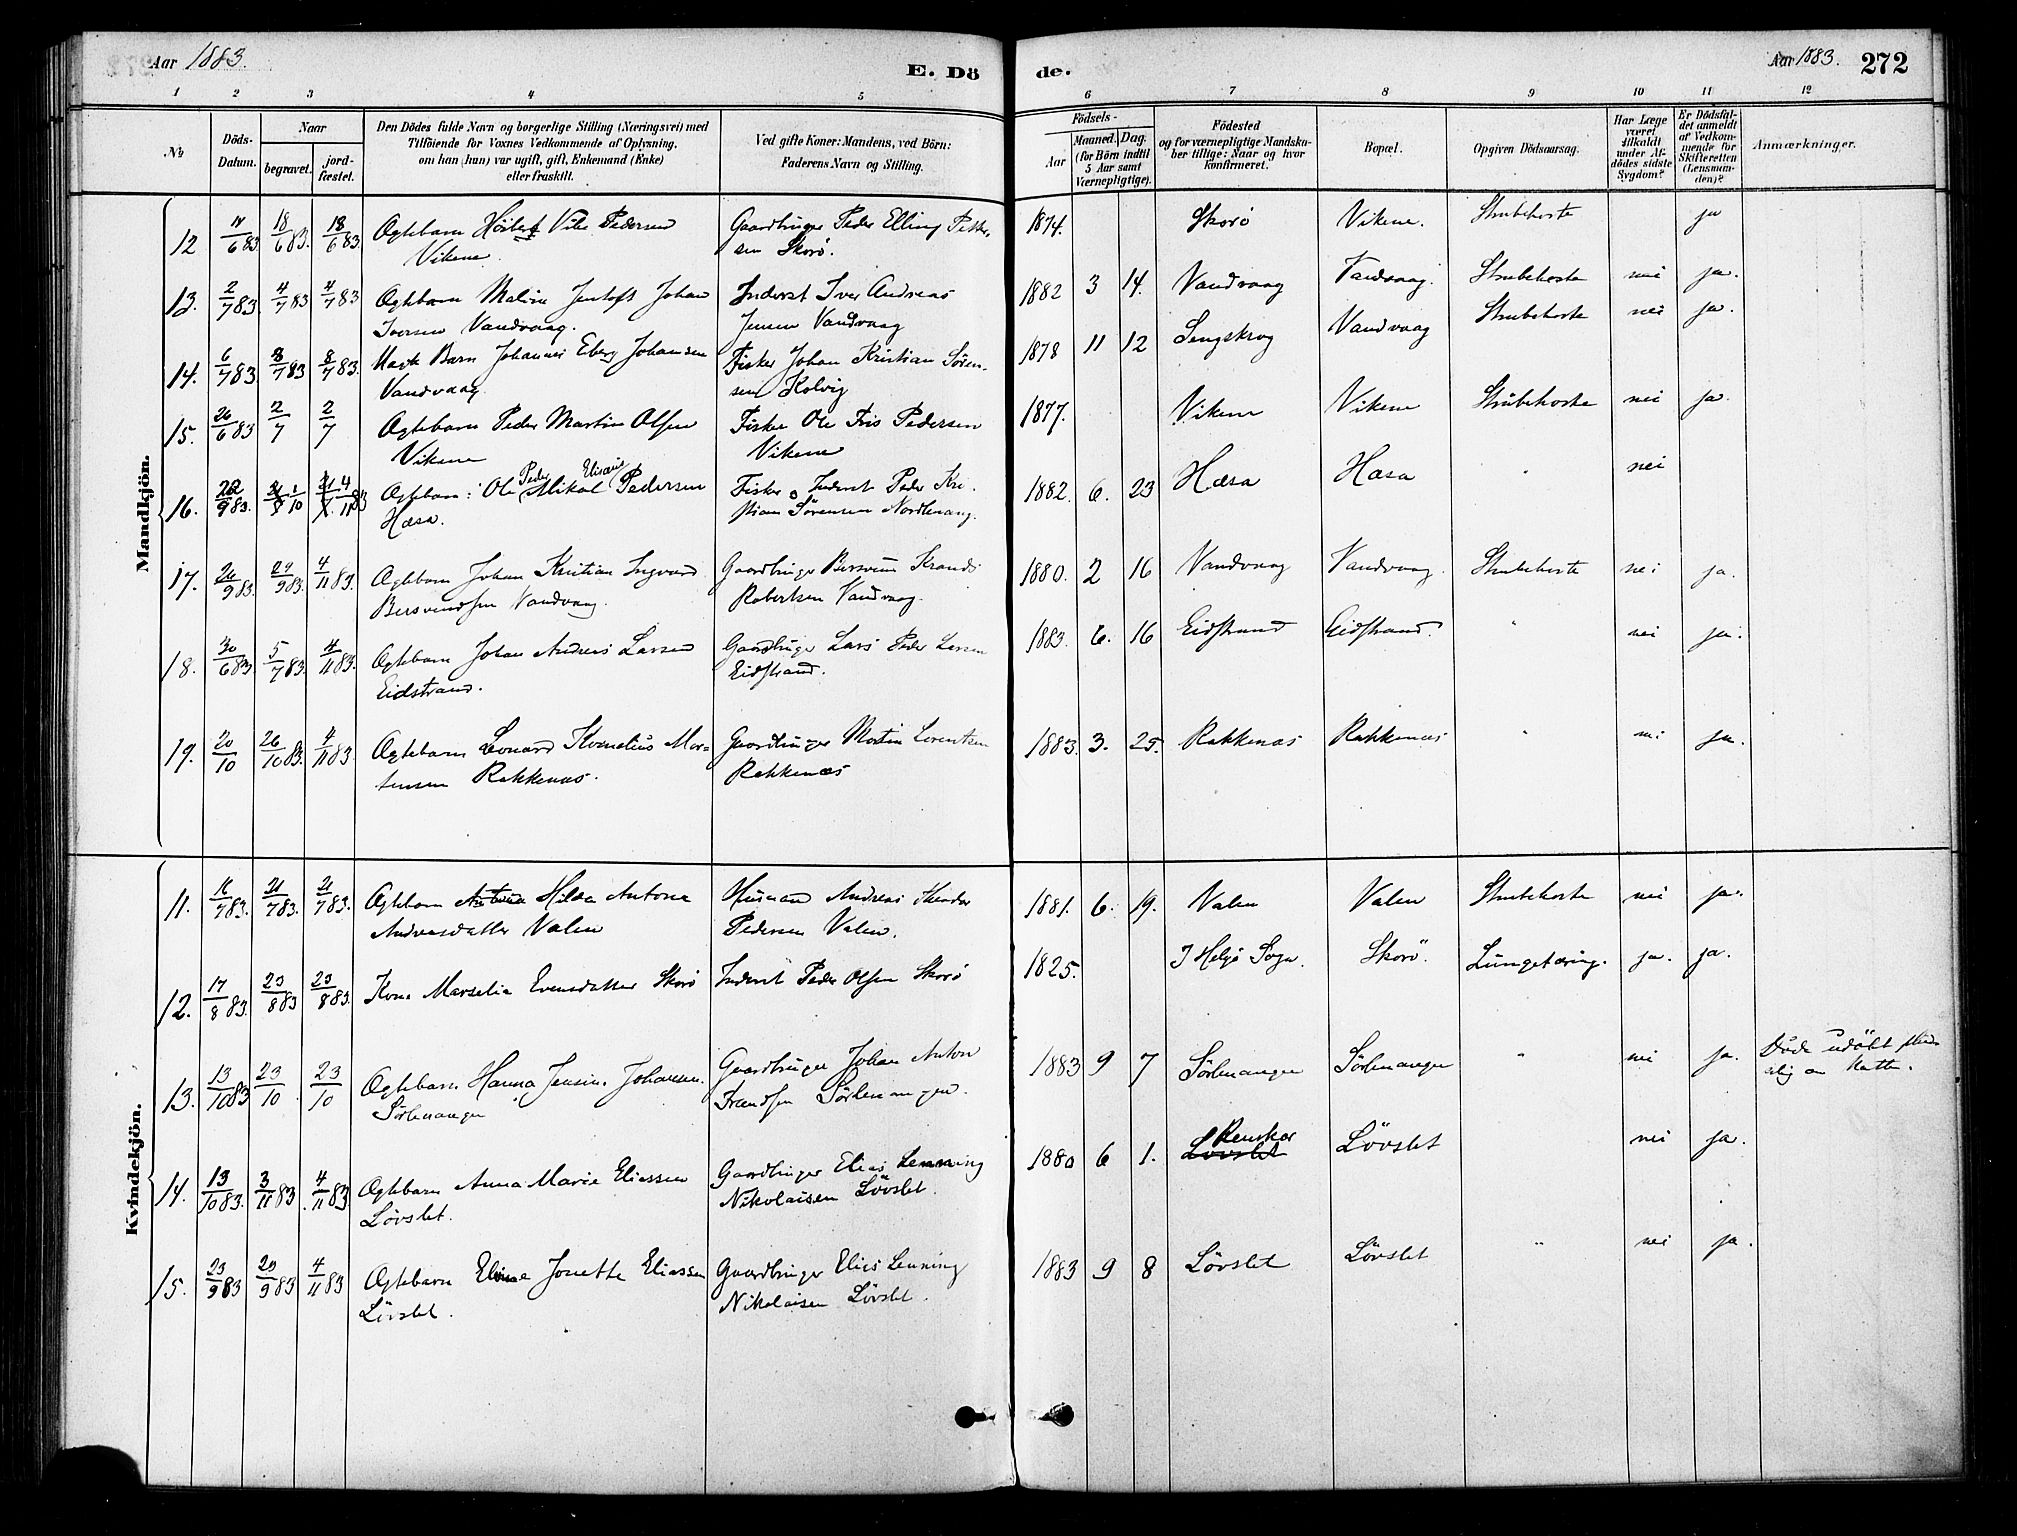 Aar 1883.
E. Dö
de.
Aar 1883.
272
1 2 3 4 5 6 7 8 9 10 11 12
No
Döds-
Datum.
Naar
begravet.
jord-
fæstet.
Den Dödes fulde Navn og borgerlige Stilling (Næringsvei) med
Tilföiende for Voxnes Vedkommende af Oplysning,
om han (hun) var ugift, gift, Enkemand (Enke)
eller fraskilt.
Ved gifte Koner: Mandens, ved Börn:
Faderens Navn og Stilling.
Födsels-
Aar
Maaned. Dag.
(for Börn indtil
5 Aar samt
Værnepligtige).
Födested
og for værnepligtige Mandska-
ber tillige: Naar og hvor
konfirmeret.
Bopæl.
Opgiven Dödsaarsag.
Har Læge
været
tilkaldt
under Af-
dödes sidste
Sygdom?
Er Dödsfal-
det anmeldt
af Vedkom-
mende for
Skifteretten
(Lensman-
den)?
Anmærkninger.
Mandkjön.
12 11/6 83. 18/6 83. 18/6 83. Ægtebarn Pedersen Gaardbruger Peder Elling Peter- 1874. Skorö Vikene. Strubehoste ja
Vikene sen Skorö.
13. 2/7 83. 4/7 83 4/7 83 Ægtebarn Malvin Jentoft Johan Inderst Iver Andreas 1882 3 14. Vandvaag Vandvaag. Strubehoste nei ja.
Iversen Vandvaag. Jensen Vandvaag
14. 6/7 83. 8/7 83 8/7 83. Barn Johannes Eberg Johansen Fisker Johan Kristian Sören- 1878 11 12 Lengskrog Vandvaag Strubehoste nei ja.
Vandvaag sen Kolvig
15. 26/6 83 2/7 2/7 Ægtebarn Peder Martin Olsen Fisker Ole Fris Pedersen 1877. Vikene Vikene Strubehoste nei ja.
Vikene Vikene
16. 22/9 83. 1/10 4/11 83 Ægtebarn: Ole Peder Mikal Elisæus Pedersen Fisker o Inderst Peder Kri- 1882. 6. 23 Hæsa Hasa " nei
Hæsa. stian Sörensen Nordlenang.
17. 26/9 83. 29/9 83. 4/11 83. Ægtebarn Johan Kristian Ingvard Gaardbruger Bersvend Krands 1880. 2 16 Vandvaag Vandvaag. Strubehoste nei ja.
Bersvendsen Vandvaag. Robertsen Vandvaag.
18. 30/6 83. 5/7 83. 4/11 83. Ægtebarn Johan Andreas Larsen Gaardbruger Lars Peder Larsen 1883. 6. 16 Eidstrand Eidstrand. " nei ja.
Eidstrand. Eidstrand.
19. 20/10 26/10 83. 4/11 83 Ægtebarn Leonard Kornelius Mor- Gaardbruger Mortin Lorentsen 1883. 3. 25. Rakkenæs Rakkenæs " nei ja.
tensen Rakkenæs. Rakkenæs
Kvindekjön.
11. 16/7 83. 21/7 83. 21/7 83. Ægtebarn Hilda Antona Husmand Andreas Pedersen 1881. 6. 19. Valen Valen Strubehoste nei ja.
Andreasdatter Valen Valen.
12. 17/8 83. 23/8 83 23/8 83. Kone Marselia Evensdatter Skorö Inderst Peder Olsen Skorö 1825. I Helgö Sogn. Skorö. Lungetæring. ja. ja.
13. 13/10 83 23/10 23/10 Ægtebarn Hanna Jensine Johansen. Gaardbruger Johan Anton 1883 9 7 Sörlenangen Sörlenangen " nei ja. Döde udöbt
Sörlenangen Frandsen Sörlenangen. Natten.
14. 13/10 83. 3/11 83 4/11 83 Ægtebarn Anna Marie Eliassen Gaardbruger Elias Lenning 1880 6 1. Lövslet Renskar Lövslet nei ja.
Lövslet. Nikolaisen Lövslet.
15. 23/9 83 29/9 83 4/11 83 Ægtebarn Eline Jonette Eliassen Gaardbruger Elias Lenning 1883 9 8 Lövslet Lövslet " nei ja.
Lövslet. Nikolaisen Lövslet.